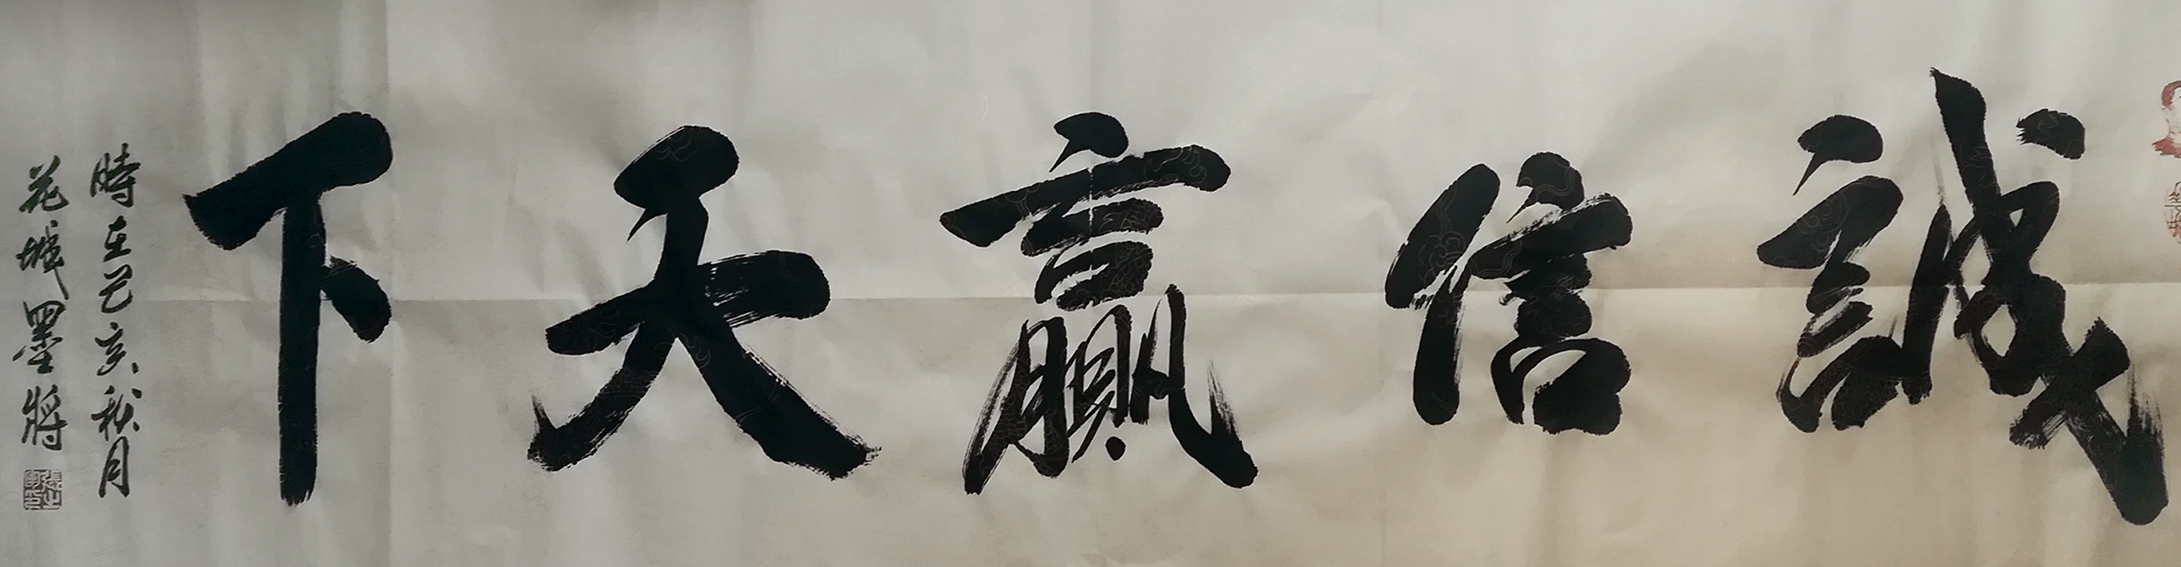 誠信贏天下
時在己亥秋月
花城墨將